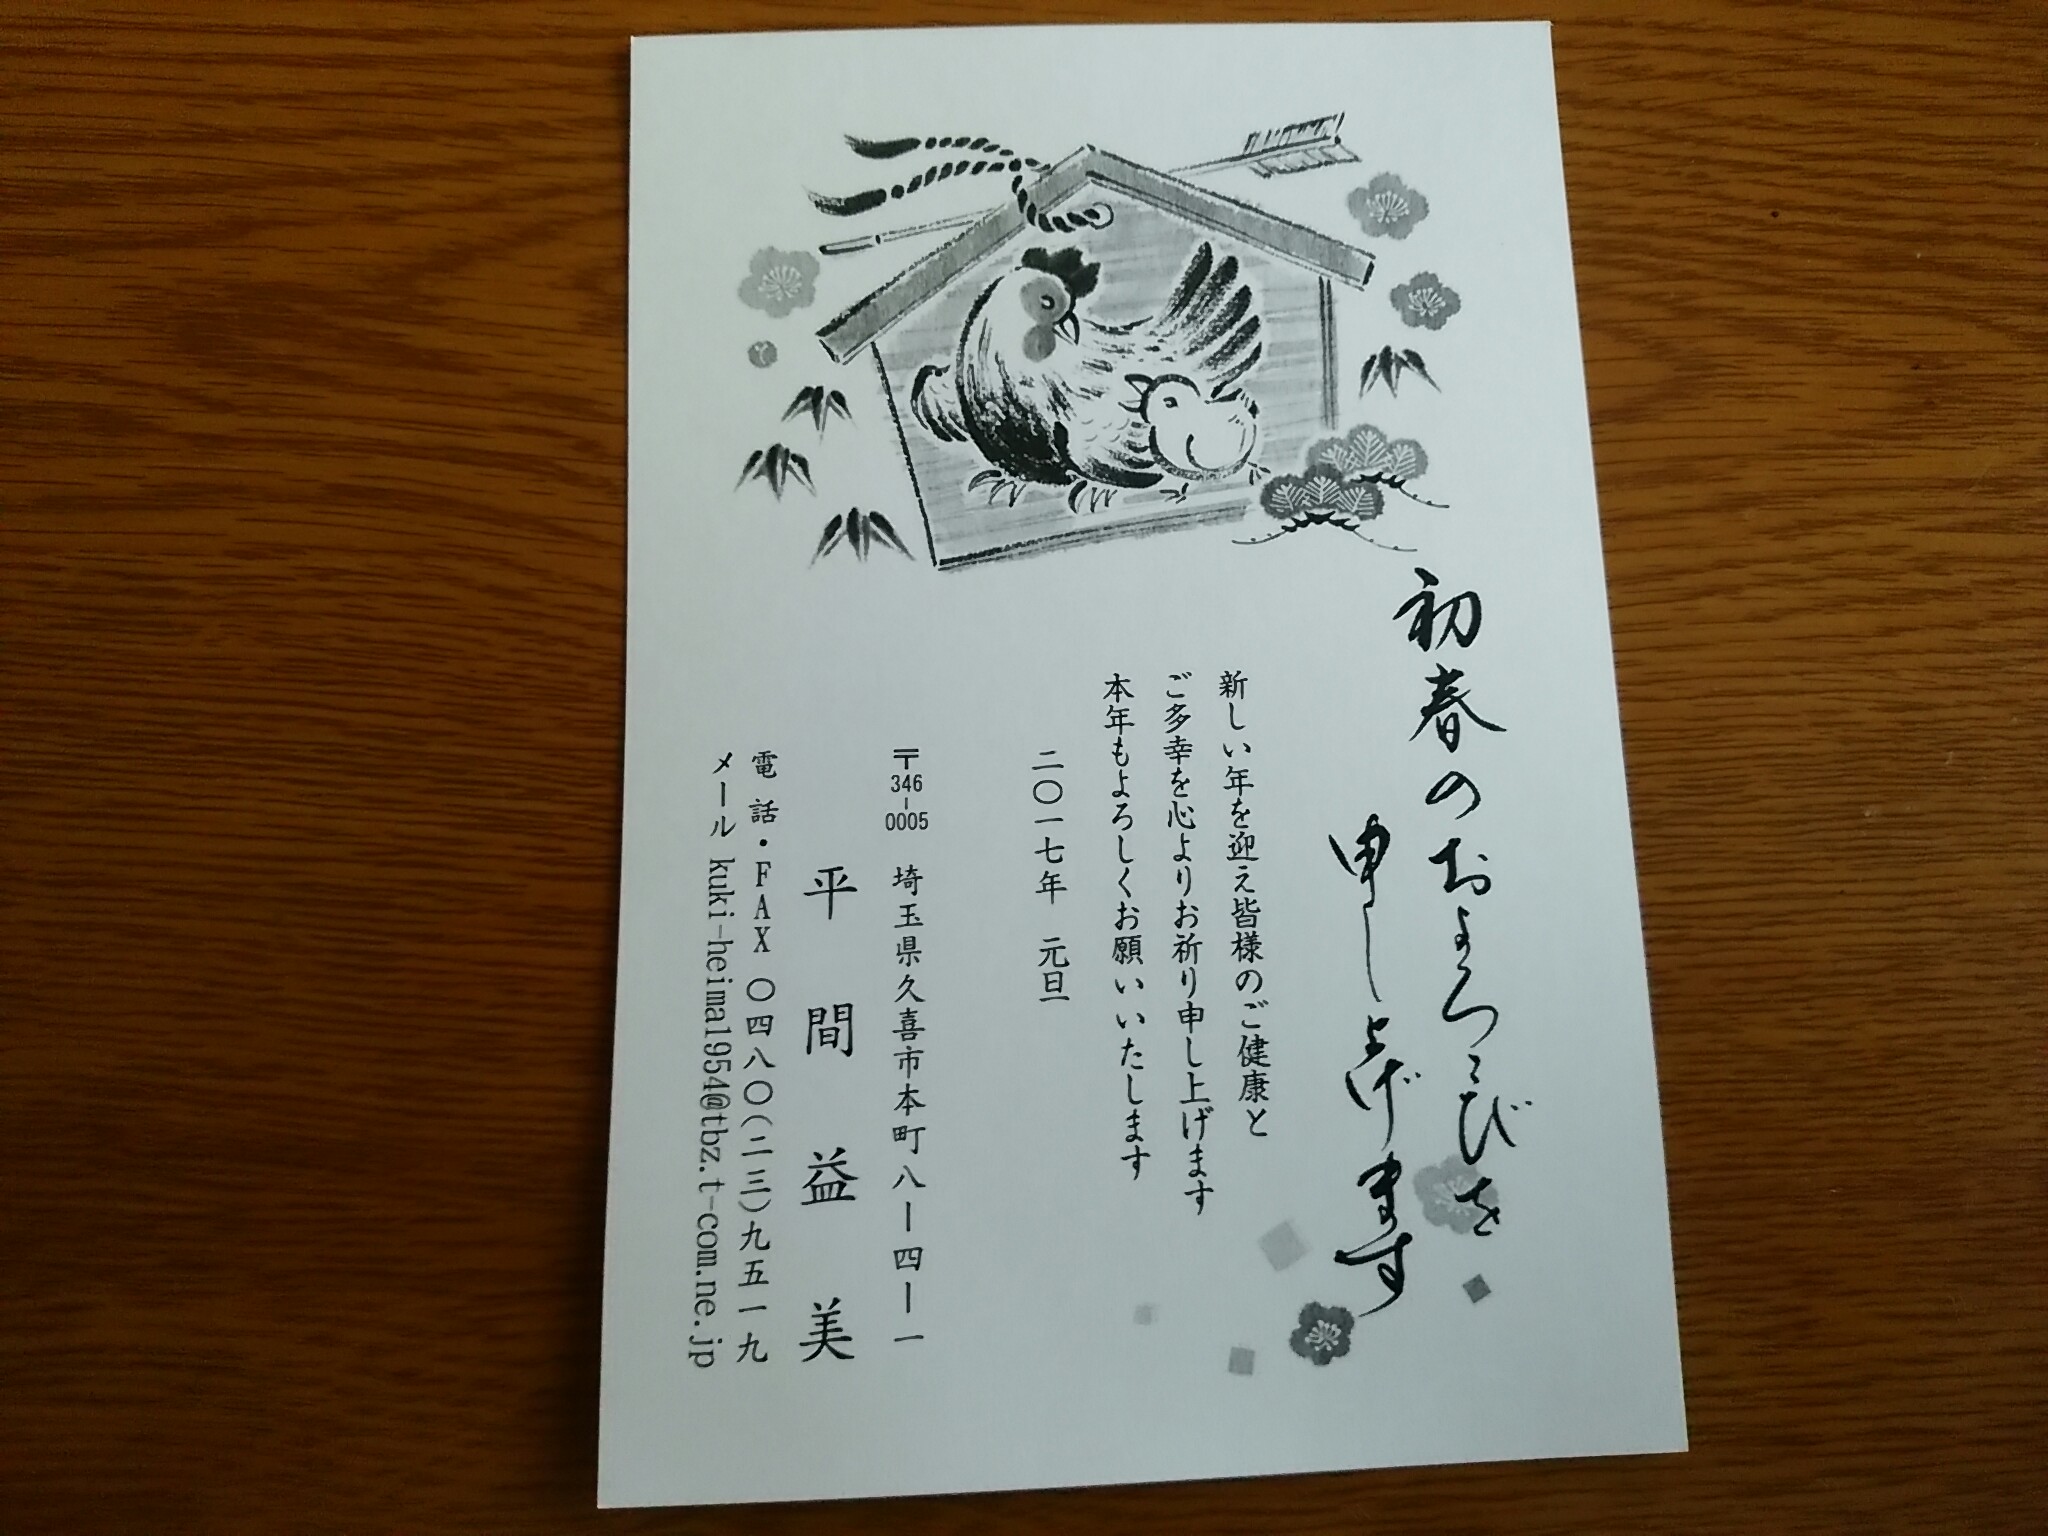 初春のおよろこびを
申し上げます
新しい年を迎え皆様のご健康と
ご多幸を心よりお祈り申し上げます
本年もよろしくお願いいたします
二〇一七年 元旦
〒346-0005 埼玉県久喜市本町八ー四ー一
平間益美
電話・FAX 〇四八〇(二三)九五一九
メール kuki-heima1954@tbz.t-com.ne.jp